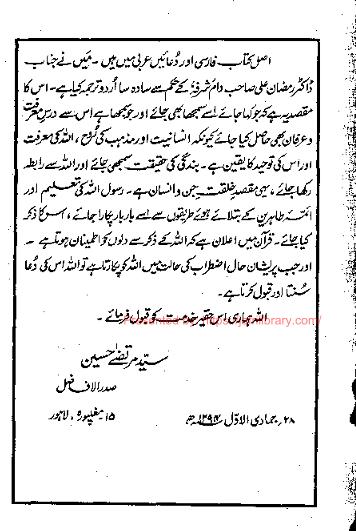 اصل کتاب فارسی اور دُعائیں عربی میں ہیں۔ مَیں نے جناب
ڈاکٹر رمضان علی صاحب دام شرفہٗ کے حکم سے سادہ سا اُردو ترجمہ کیا ہے۔ اس کا
مقصد یہ ہے کہ جو کہا جائے اُسے سمجھا بھی جائے اور جو سمجھا ہے اس سے درسِ معرفت
و عرفان بھی حاصل کیا جائے کیونکہ انسانیت اور مذہب کی رُوح، اللہ کی معرفت
اور اس کی توحید کا یقین ہے۔ بندگی کی حقیقت سمجھی جائے اور اللہ سے رابطہ
رکھا جائے، یہی مقصدِ خلقتِ جن و انسان ہے۔ رسول اللہ کی تعلیم اور
ائمۂ طاہرین کے بتلائے ہوئے طریقوں سے اُسے بار بار پکارا جائے، اُس کا ذکر
کیا جائے۔ قرآن میں اعلان ہے کہ اللہ کے ذکر سے دلوں کو اطمینان ہوتا ہے۔
اور جب پریشان حال اضطراب کی حالت میں اللہ کو پکارتا ہے تو اللہ اس کی دُعا
سُنتا اور قبول کرتا ہے۔
اللہ ہماری اس حقیر خدمت کو قبول فرمائے۔
سیّد مرتضیٰ حسین
صدر الافاضل
۱۵ مغلپورہ، لاہور
۲۸؍ جمادی الاوّل ۱۳۹۴ھ